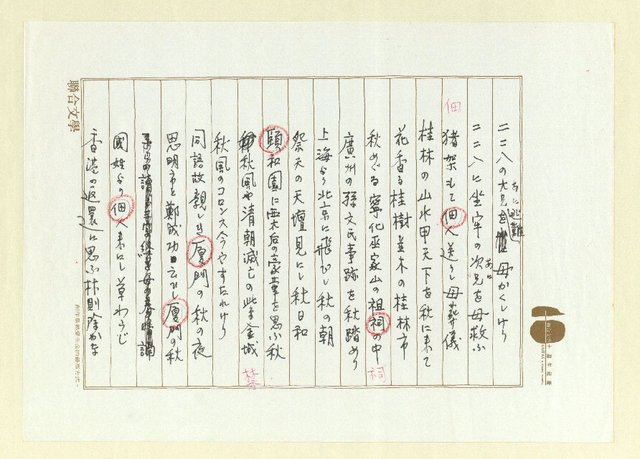 二二八の大兄に避難母かくしけり
二二八に坐牢の次兄を母救ふ
佃
猪架もて佃人送りし母葬儀
桂林の山水甲天下を秋に来て
花香る桂樹並木の桂林市
秋めぐる寧化巫家山の祖祠の中
祠
廣州の孫文氏事跡を秋踏めり
上海より北京に飛びし秋の朝
祭天の天壇見にし秋日和
頤和園に西太后の豪華を思ふ秋
秋風や清朝滅亡の此紫金城
禁
秋風のコロンス今うやすたれけり
同語故親しき厦門の秋の夜
思明市と鄭成功云ひし厦門の秋
國姓より佃人来にし草わらじ
香港の返還に思ふ林則除かな
聯合文學